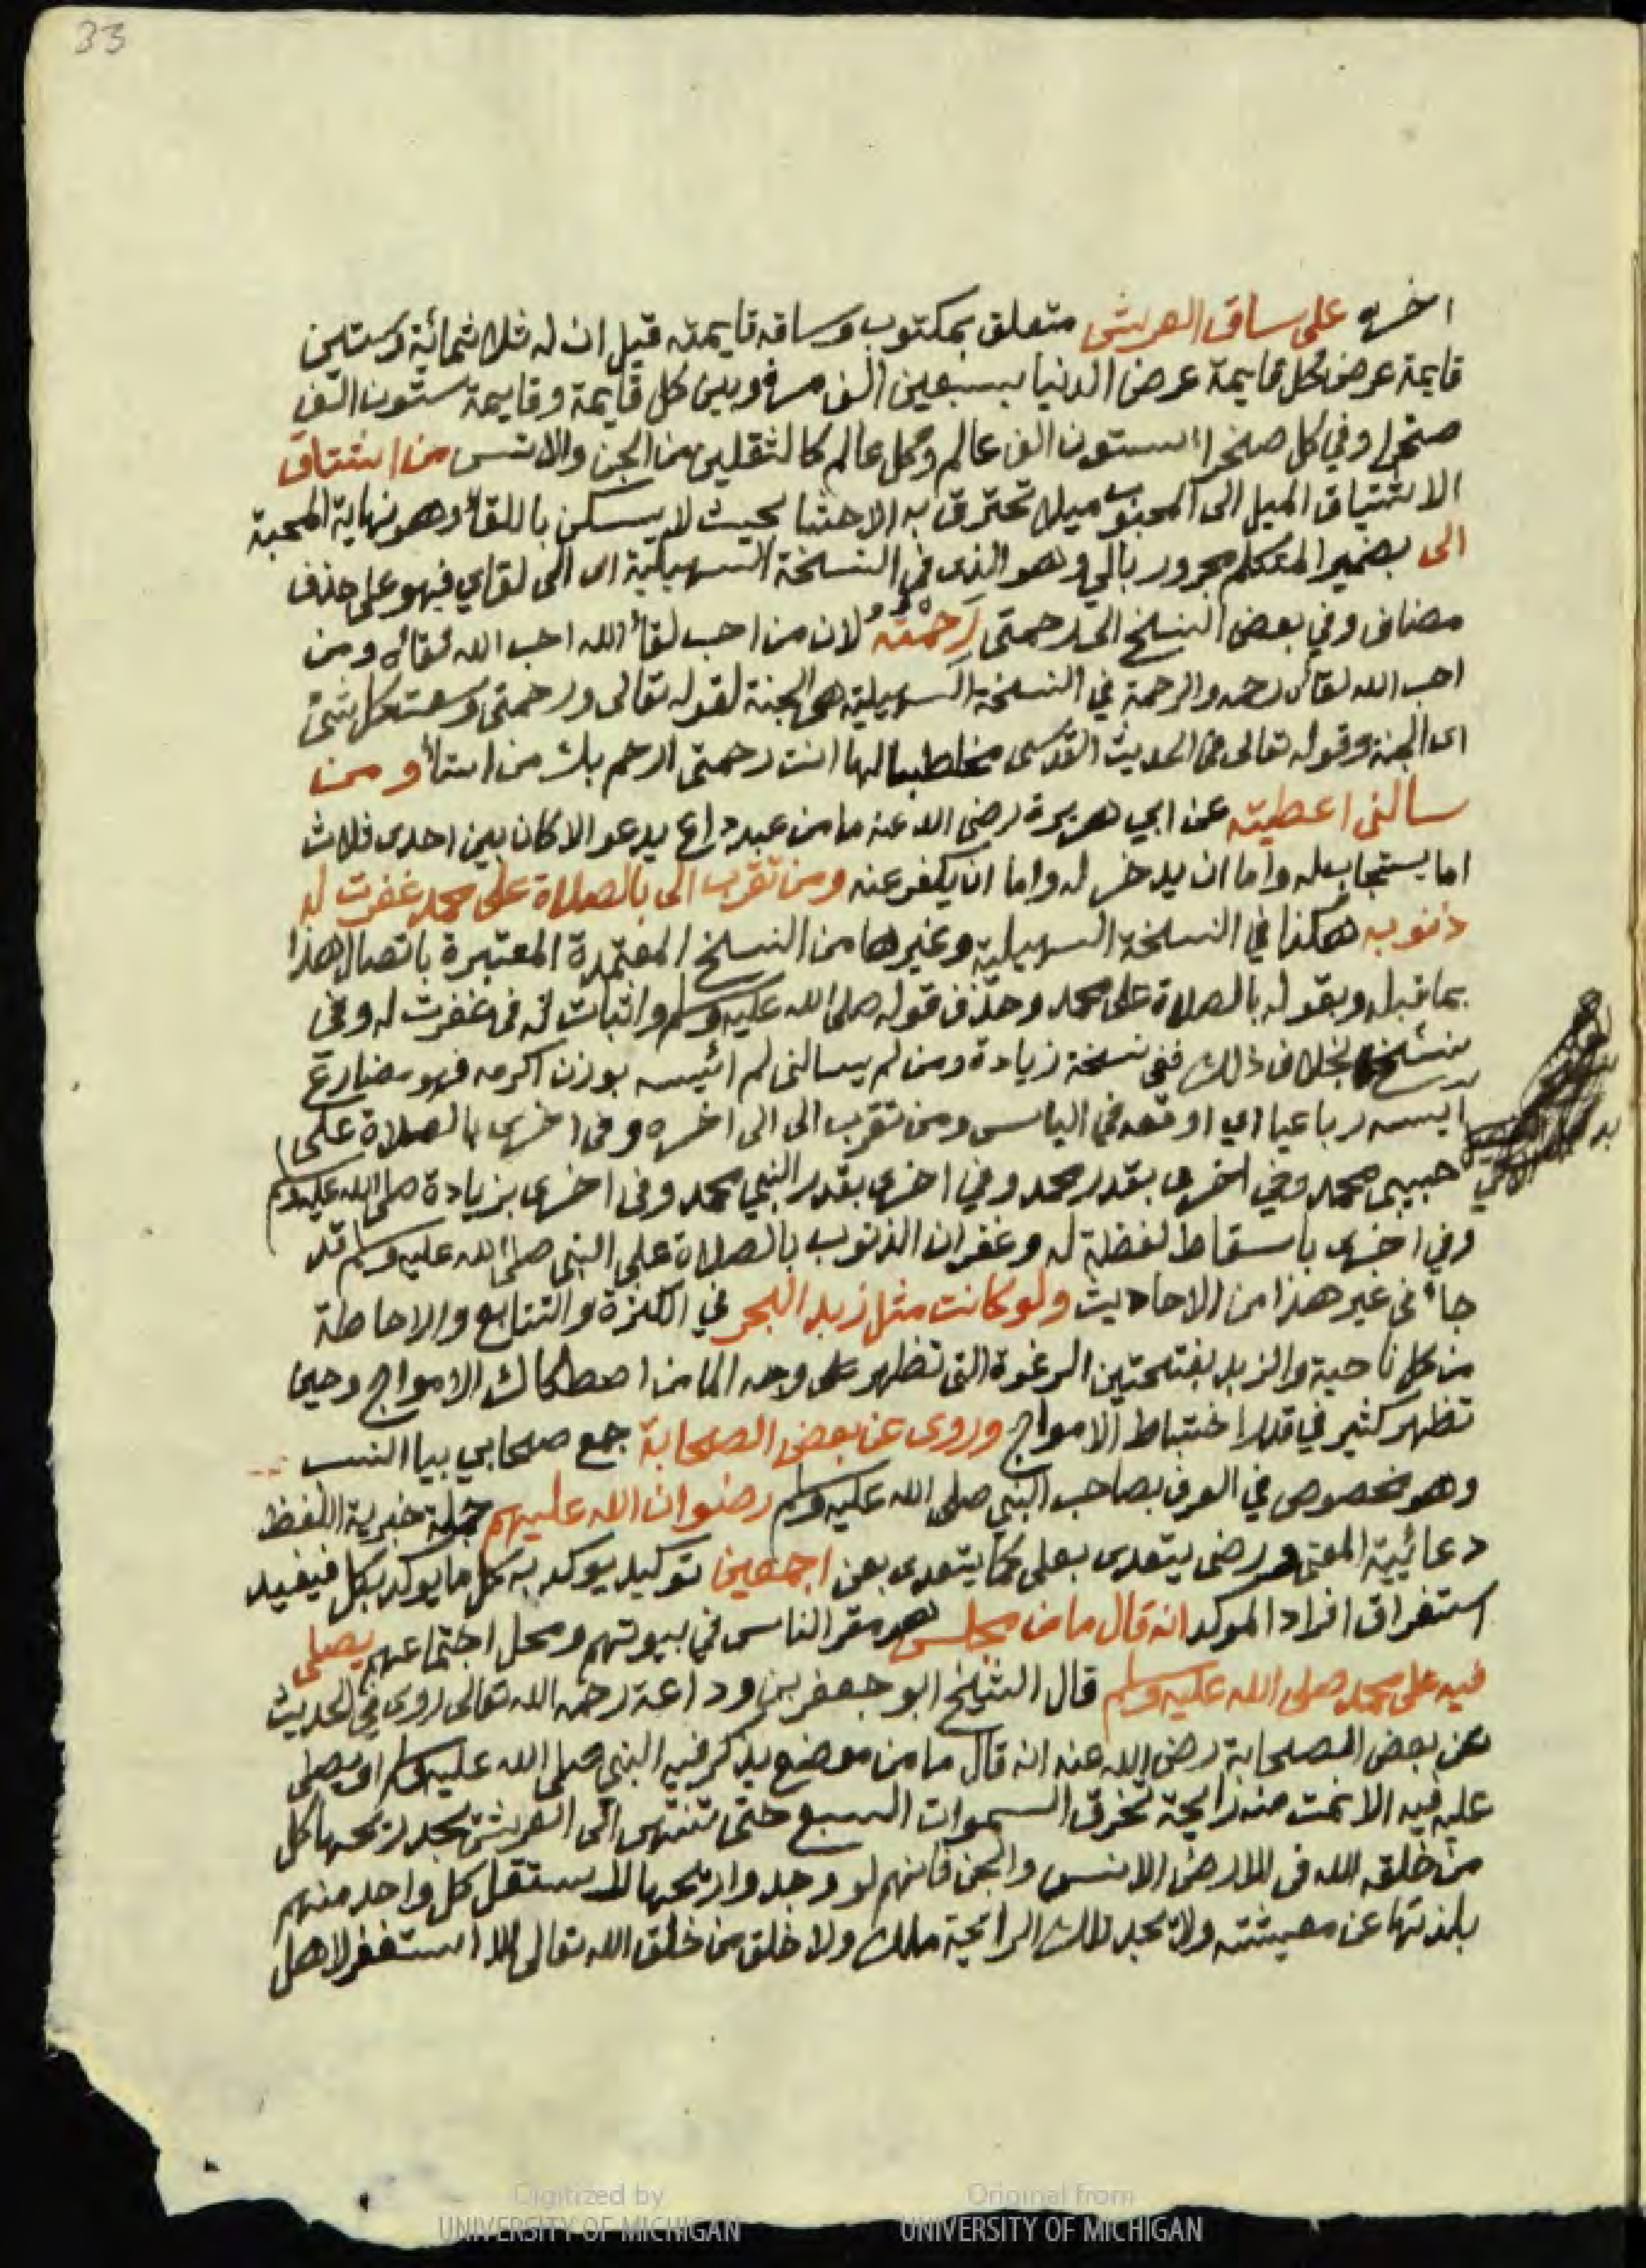 33
اخره على ساق العرش متعلق بمكتوب وساقه قايمته قيل ان له ثلاثمائة وستين
قايمة عرض كل قايمة عرض الدنيا بسبعين الف مرة وبين كل قايمة وقايمة ستون الف
صحرا وفي كل صحرا ستون الف عالم وكل عالم كالثقلين من الجن والانس من اشتاق
الاشتياق الميل الى المحبوب ميلا تحترق به الاحشا بحيث لا يسكن باللقا وهو نهاية المحبة
الى بضمير المتكلم مجرور بالى وهو الذى في النسخة السهيلية اى الى لقاي فهو على حذف
مضاف وفي بعض النسخ الى رحمتى رحمته لان من احب لقا الله احب الله لقائه ومن
احب الله لقائه رحمه والرحمة في النسخة السهيلية هي الجنة لقوله تعالى ورحمتى وسعت كل شئ
اى الجنة وقوله تعالى في الحديث القدسى مخاطبا لها انت رحمتى ارحم بك من اشا ومن
سالنى اعطيته عن ابي هريرة رضى الله عنه ما من عبد داع يدعو الا كان بين احدى ثلاث
اما يستجاب له واما ان يدخر له واما ان يكفر عنه ومن تقرب الى بالصلاة على محمد غفرت له
ذنوبه هكذا في النسخة السهيلية وغيرها من النسخ المعتمدة المعتبرة باتصال هذا
بما قبله وبقوله بالصلاة على محمد وحذف قوله صلى الله عليه وسلم واثبات له في غفرت له وفي
نسخ بخلاف ذلك ففي نسخة زيادة ومن لم يسالنى لم ائيسه بوزن اكرمه فهو مضارع
ايسه رباعيا اي اوقعه في الياس ومن تقرب الى الى اخره وفى اخرى بالصلاة على
حبيبى محمد وفي اخرى بقدر محمد وفي اخرى بقدر النبي محمد وفى اخرى بزيادة صلى الله عليه وسلم
وفي اخرى باسقاط لفظة له وغفران الذنوب بالصلاة على النبى صلى الله عليه وسلم قد
جاء في غير هذا من الاحاديث ولو كانت مثل زبد البحر في الكثرة والتتابع والاحاطة
من كل ناحية والزبد بفتحتين الرغوة التى تظهر على وجه الما من اصطكاك الامواج وحين
تظهر كثير في قدر اختباط الامواج وروى عن بعض الصحابة جمع صحابي بيا النسب
وهو مخصوص في العرف بصاحب النبي صلى الله عليه وسلم رضوان الله عليهم جملة خبرية اللفظ
دعائيية المعنى ورضى يتعدى بعلى كما يتعدى بعن اجمعين توكيد يوكد به كل ما يوكد بكل فيفيد
استغراق افراد الموكد انه قال ما من مجلس هو مقر الناس في بيوتهم ومحل اجتماعهم يصلى
فيه على محمد صلى الله عليه وسلم قال الشيخ ابو جعفر بن وداعة رحمه الله تعالى روى في الحديث
عن بعض الصحابة رضى الله عنه انه قال ما من موضع يذكر فيه النبي صلى الله عليه وسلم او يصلى
عليه فيه الا نمت منه رايحة تخرق السموات السبع حتى تنتهى الى العرش يجد ريحها كل
من خلقه الله فى الارض الا الانس والجن فانهم لو وجدوا ريحها لاستقل كل واحد منهم
بلذتها عن معيشته ولا يجد تلك الرايحة ملك ولا خلق من خلق الله تعالى الا استغفر لاهل
Digitized by
UNIVERSITY OF MICHIGAN
Original from
UNIVERSITY OF MICHIGAN